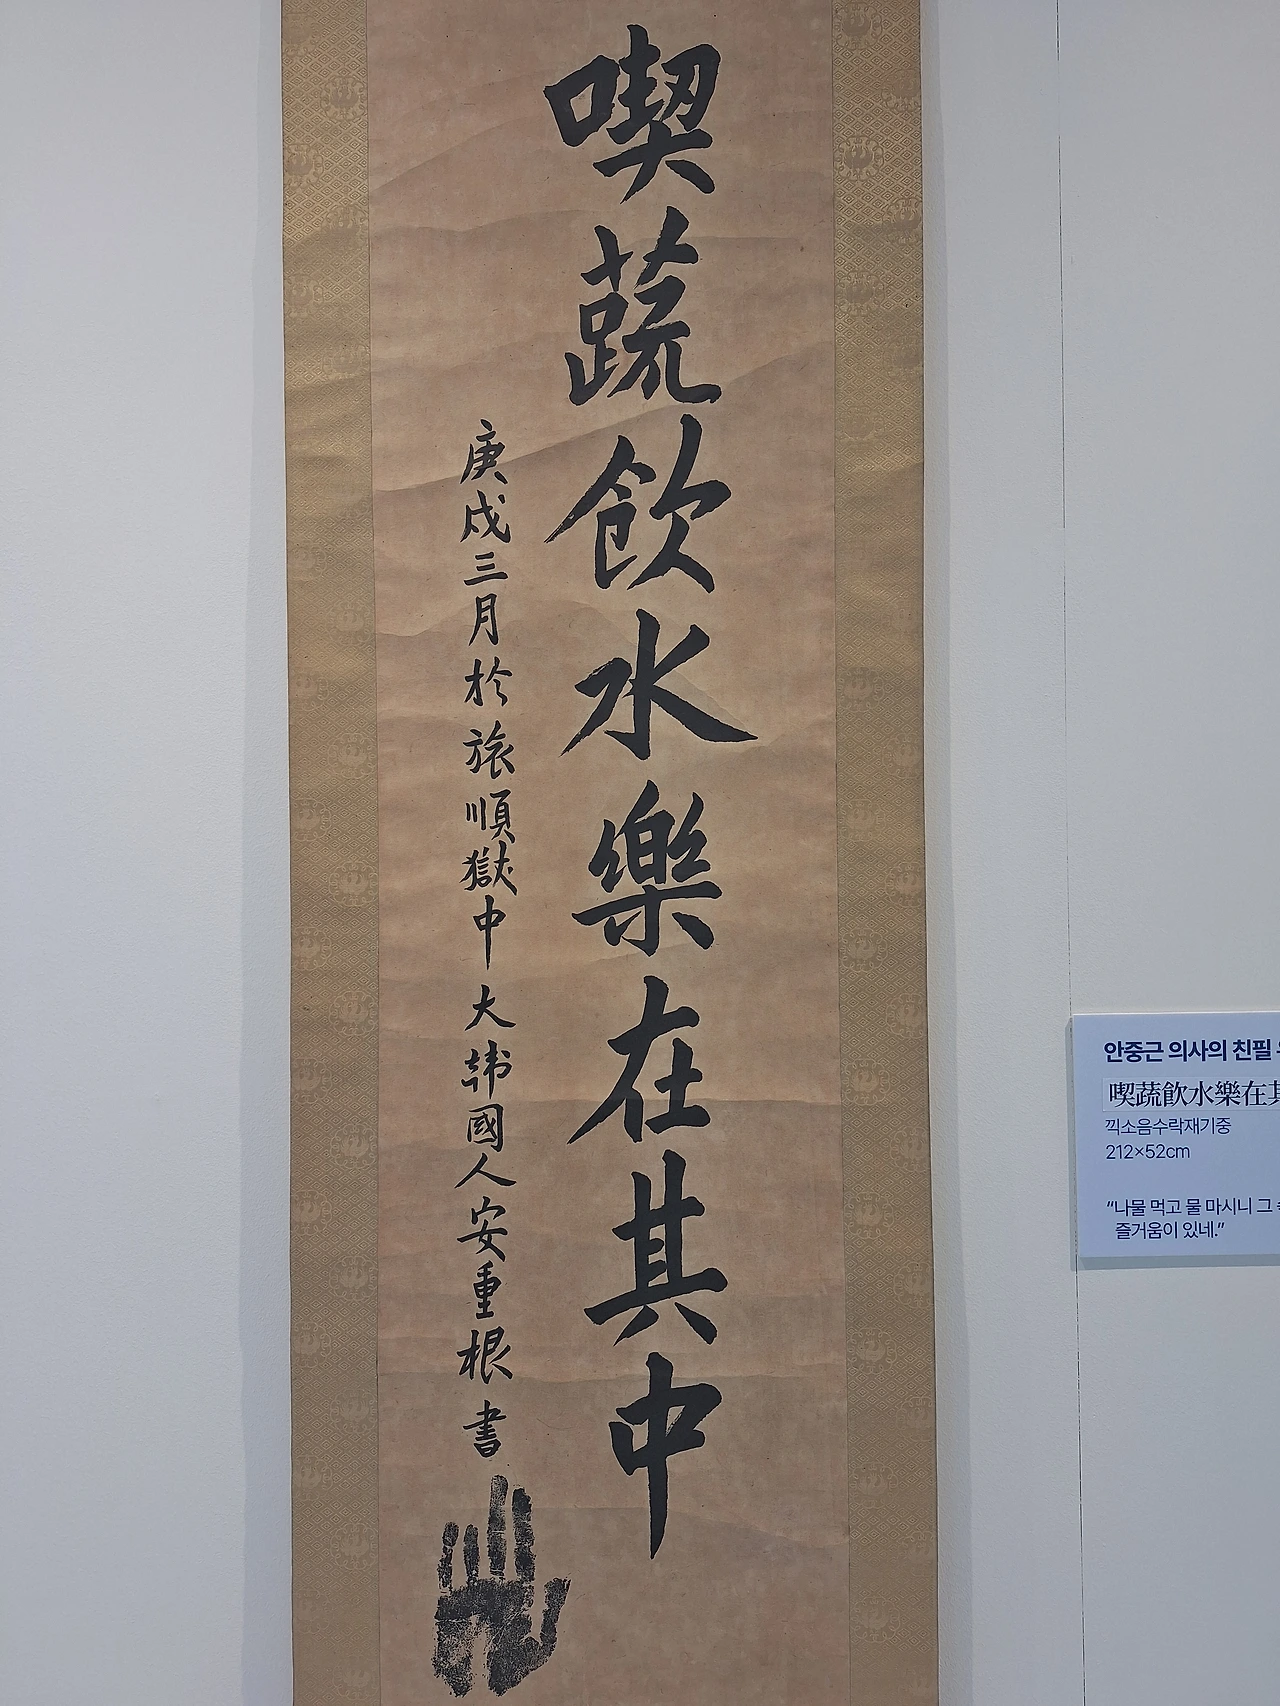 喫蔬飮水樂在其中
庚戌三月於旅順獄中大韓國人安重根書
안중근 의사의 친필
喫蔬飮水樂在其
끽소음수락재기중
212×52cm
“나물 먹고 물 마시니 그
즐거움이 있네.”